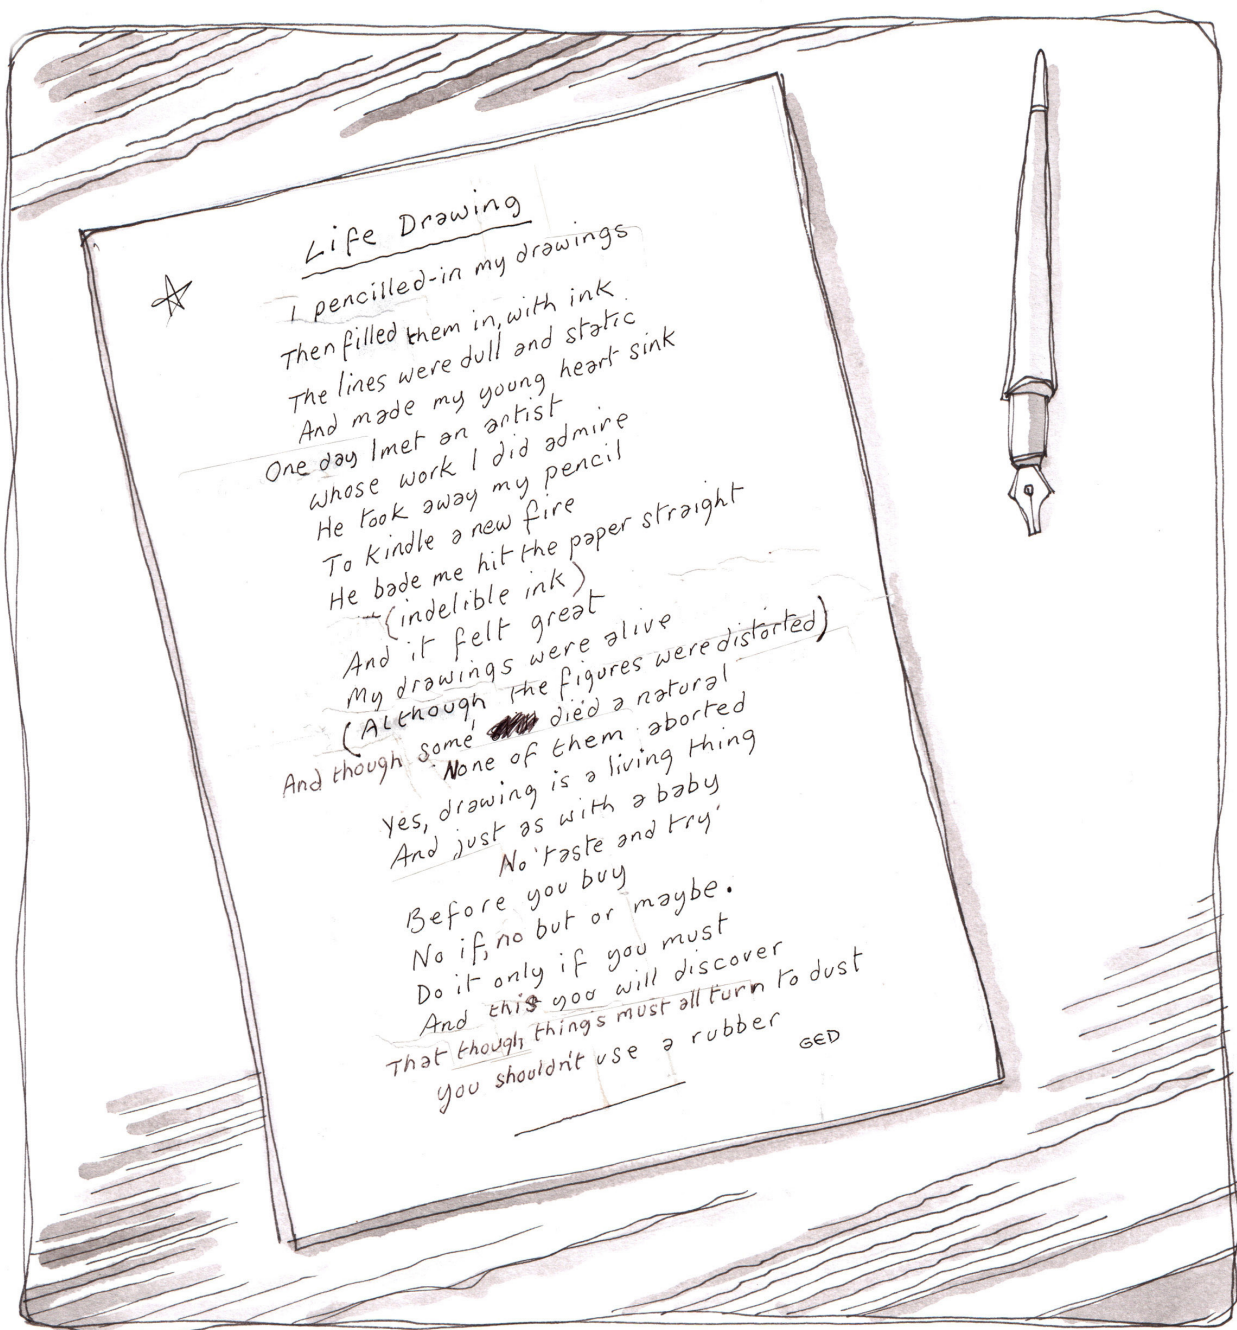 Life Drawing
I pencilled-in my drawings
Then filled them in, with ink
The lines were dull and static
And made my young heart sink
One day I met an artist
whose work I did admire
He took away my pencil
To kindle a new fire
He bade me hit the paper straight
(indelible ink)
And it felt great
My drawings were alive
(Although the figures were distorted)
And though some died a natural
None of them aborted
Yes, drawing is a living thing
And just as with a baby
No 'taste and try'
Before you buy
No if, no but or maybe.
Do it only if you must
And this you will discover
That though things must all turn to dust
you shouldn't use a rubber
GED